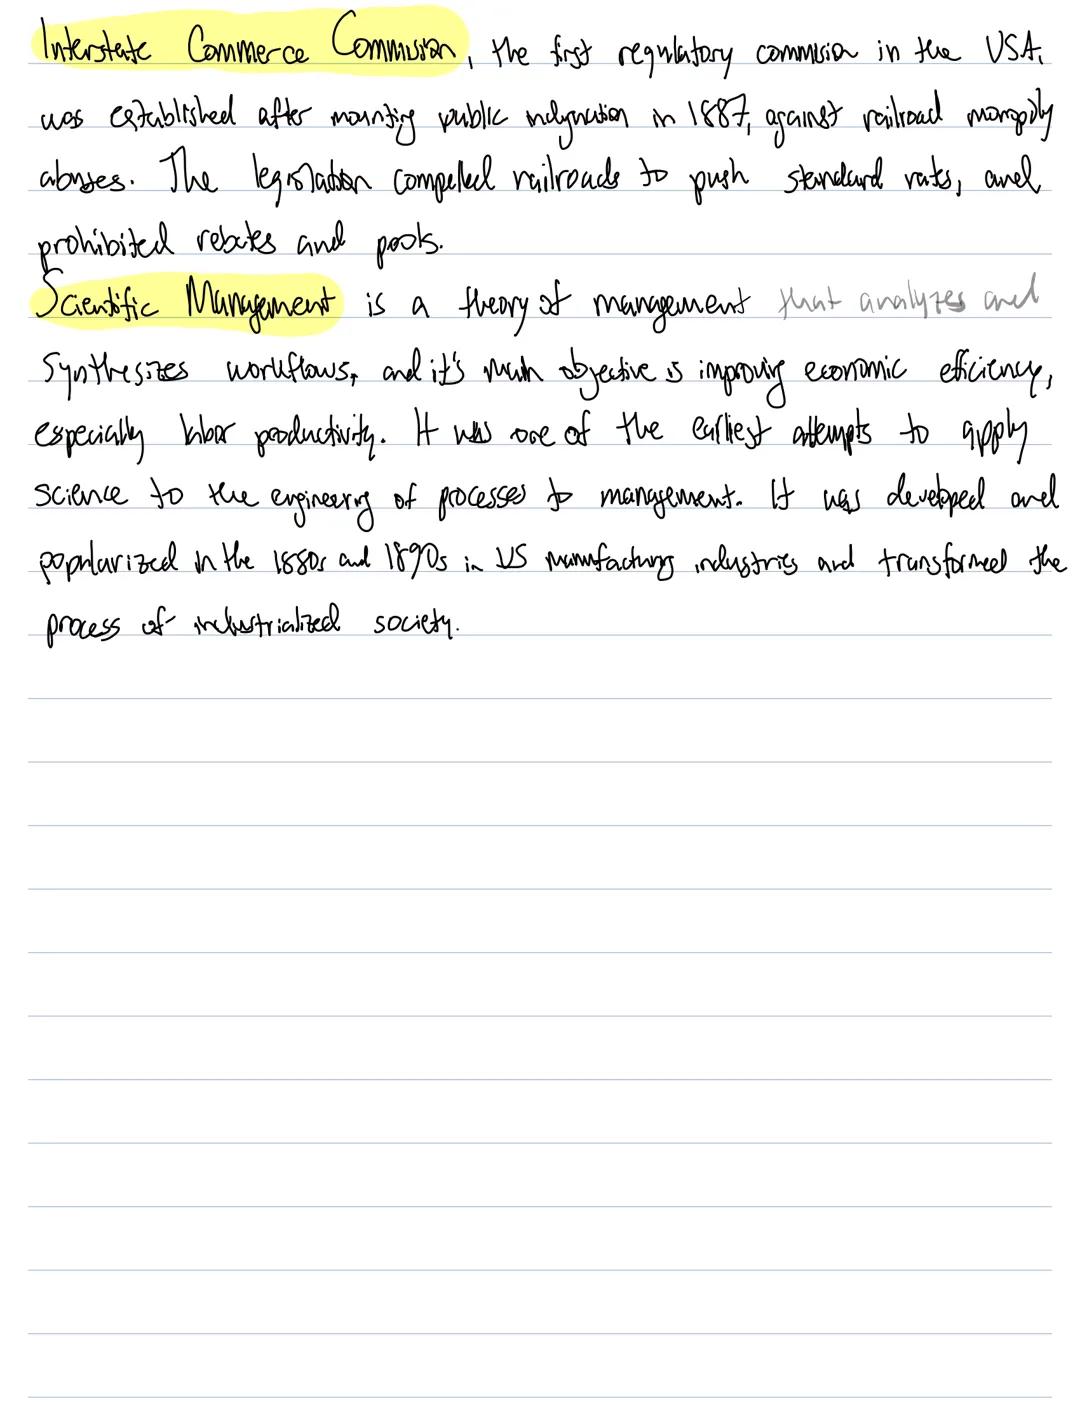 Interstate Commerce Commission, the first regulatory commision in the USA,
was established after mounting public indignation in 1887, against railroad monopoly
abuses. The legislation compelled railroads to push standard rates, and
prohibited rebates and pools.
Scientific Management is a theory of management that analyzes and
Synthesizes workflows, and it's main objective is improving economic efficiency,
especially labor productivity. It was one of the earliest attempts to apply
science to the engineering of processes to management. It was developed and
popularized in the 1880s and 1890s in US manufacturing industries and transformed the
process of industrialized society.